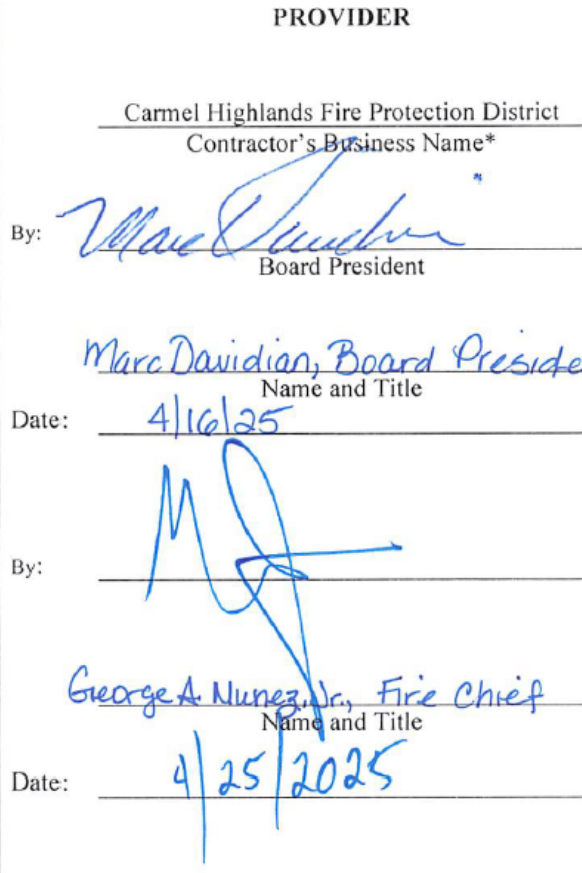 PROVIDER
Carmel Highlands Fire Protection District
Contractor's Business Name*
By: Marc Davidian
Board President
Marc Davidian, Board Preside
Name and Title
Date: 4/16/25
By:
George A. Nunez, Jr., Fire Chief
Name and Title
Date: 4/25/2025